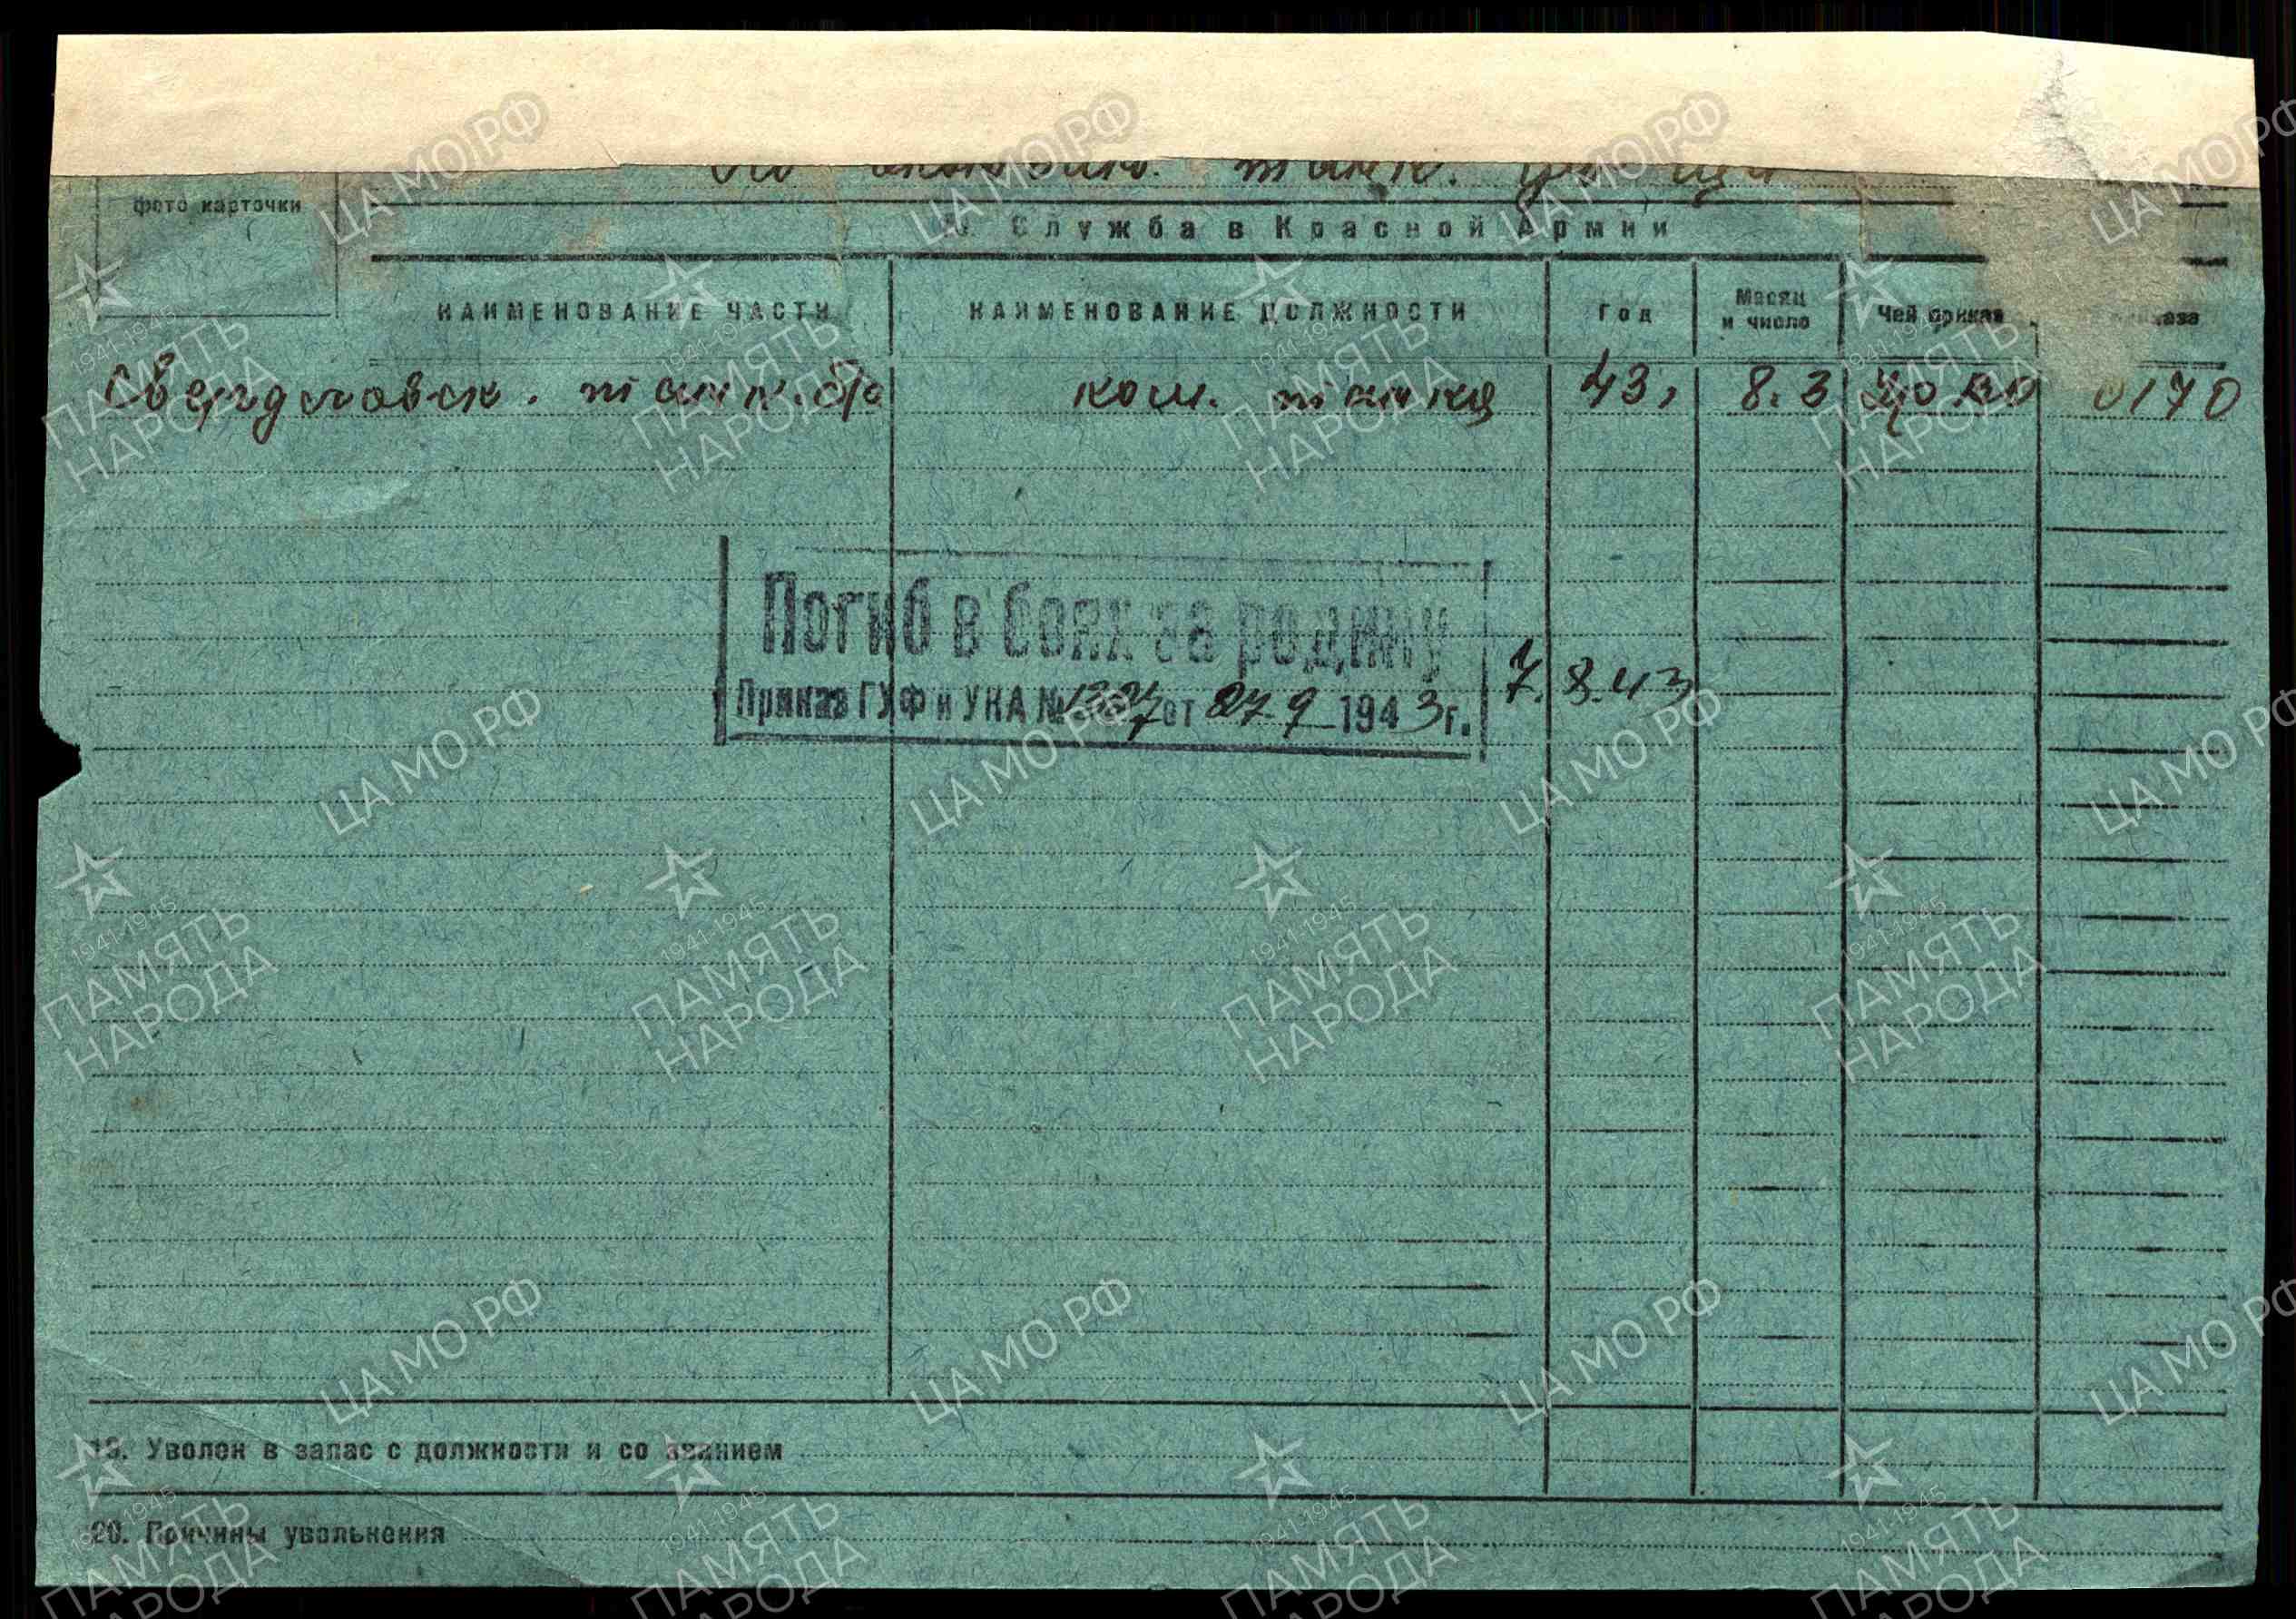 танк.
фото карточки
Служба в Красной Армии
НАИМЕНОВАНИЕ ЧАСТИ НАИМЕНОВАНИЕ ДОЛЖНОСТИ Год Месяц и число Чей приказ
Свердловск. танк. б/о ком. танка 43, 8.3 УрВО 0170
Погиб в боях за родину
Приказ ГУФ и УКА № от 27.9 1943 г. 7.8.43
19. Уволен в запас с должности и со званием
20. Причины увольнения
ЦА МО РФ
1941-1945
ПАМЯТЬ
НАРОДА